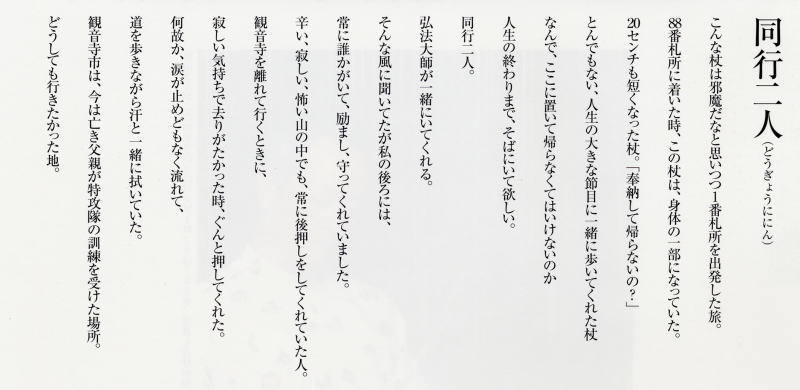 同行二人(どうぎょうににん)
こんな杖は邪魔だなと思いつつ1番札所を出発した旅。
88番札所に着いた時、この杖は、身体の一部になっていた。
20センチも短くなった杖。「奉納して帰らないの?」
とんでもない、人生の大きな節目に一緒に歩いてくれた杖
なんで、ここに置いて帰らなくてはいけないのか
人生の終わりまで、そばにいて欲しい。
同行二人。
弘法大師が一緒にいてくれる。
そんな風に聞いてたが私の後ろには、
常に誰かがいて、励まし、守ってくれていました。
辛い、寂しい、怖い山の中でも、常に後押しをしてくれていた人。
観音寺を離れて行くときに、
寂しい気持ちで去りがたかった時、ぐんと押してくれた。
何故か、涙が止めどもなく流れて、
道を歩きながら汗と一緒に拭いていた。
観音寺市は、今は亡き父親が特攻隊の訓練を受けた場所。
どうしても行きたかった地。